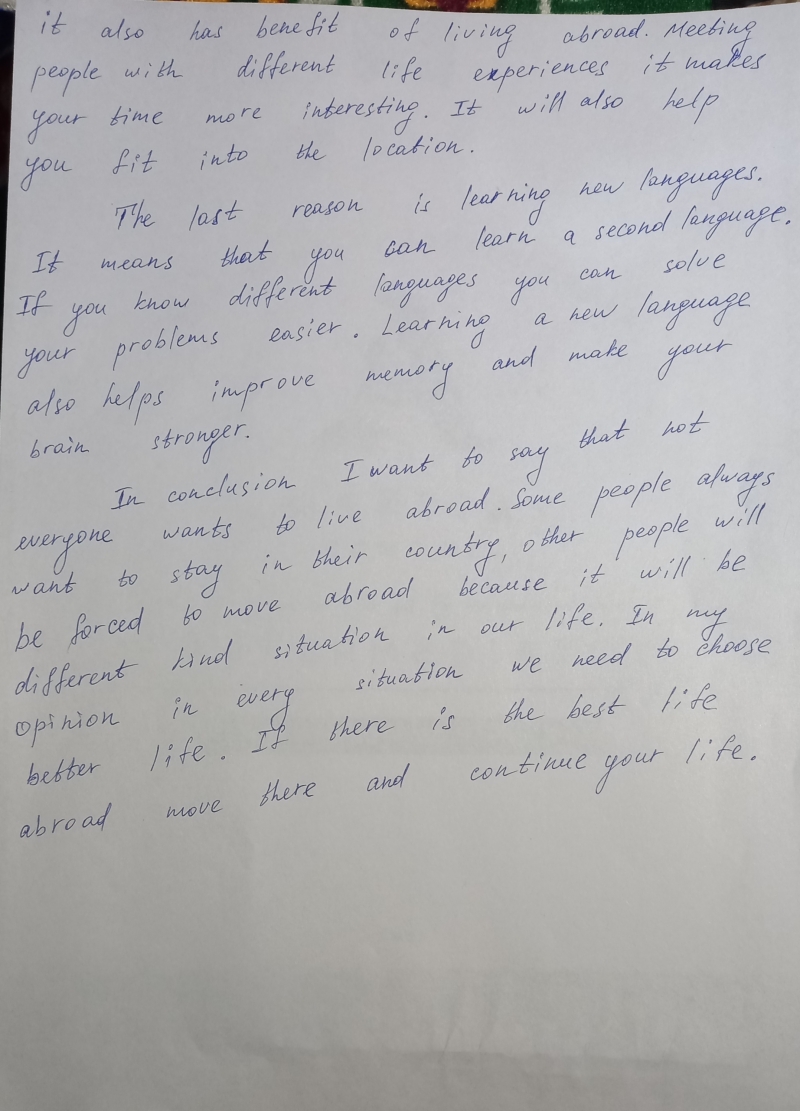 it also has benefit of living abroad. Meeting
people with different life experiences it makes
your time more interesting. It will also help
you fit into the location.
The last reason is learning new languages.
It means that you can learn a second language.
If you know different languages you can solve
your problems easier. Learning a new language
also helps improve memory and make your
brain stronger.
In conclusion I want to say that not
everyone wants to live abroad. Some people always
want to stay in their country, other people will
be forced to move abroad because it will be
different kind situation in our life. In my
opinion in every situation we need to choose
better life. If there is the best life
abroad move there and continue your life.